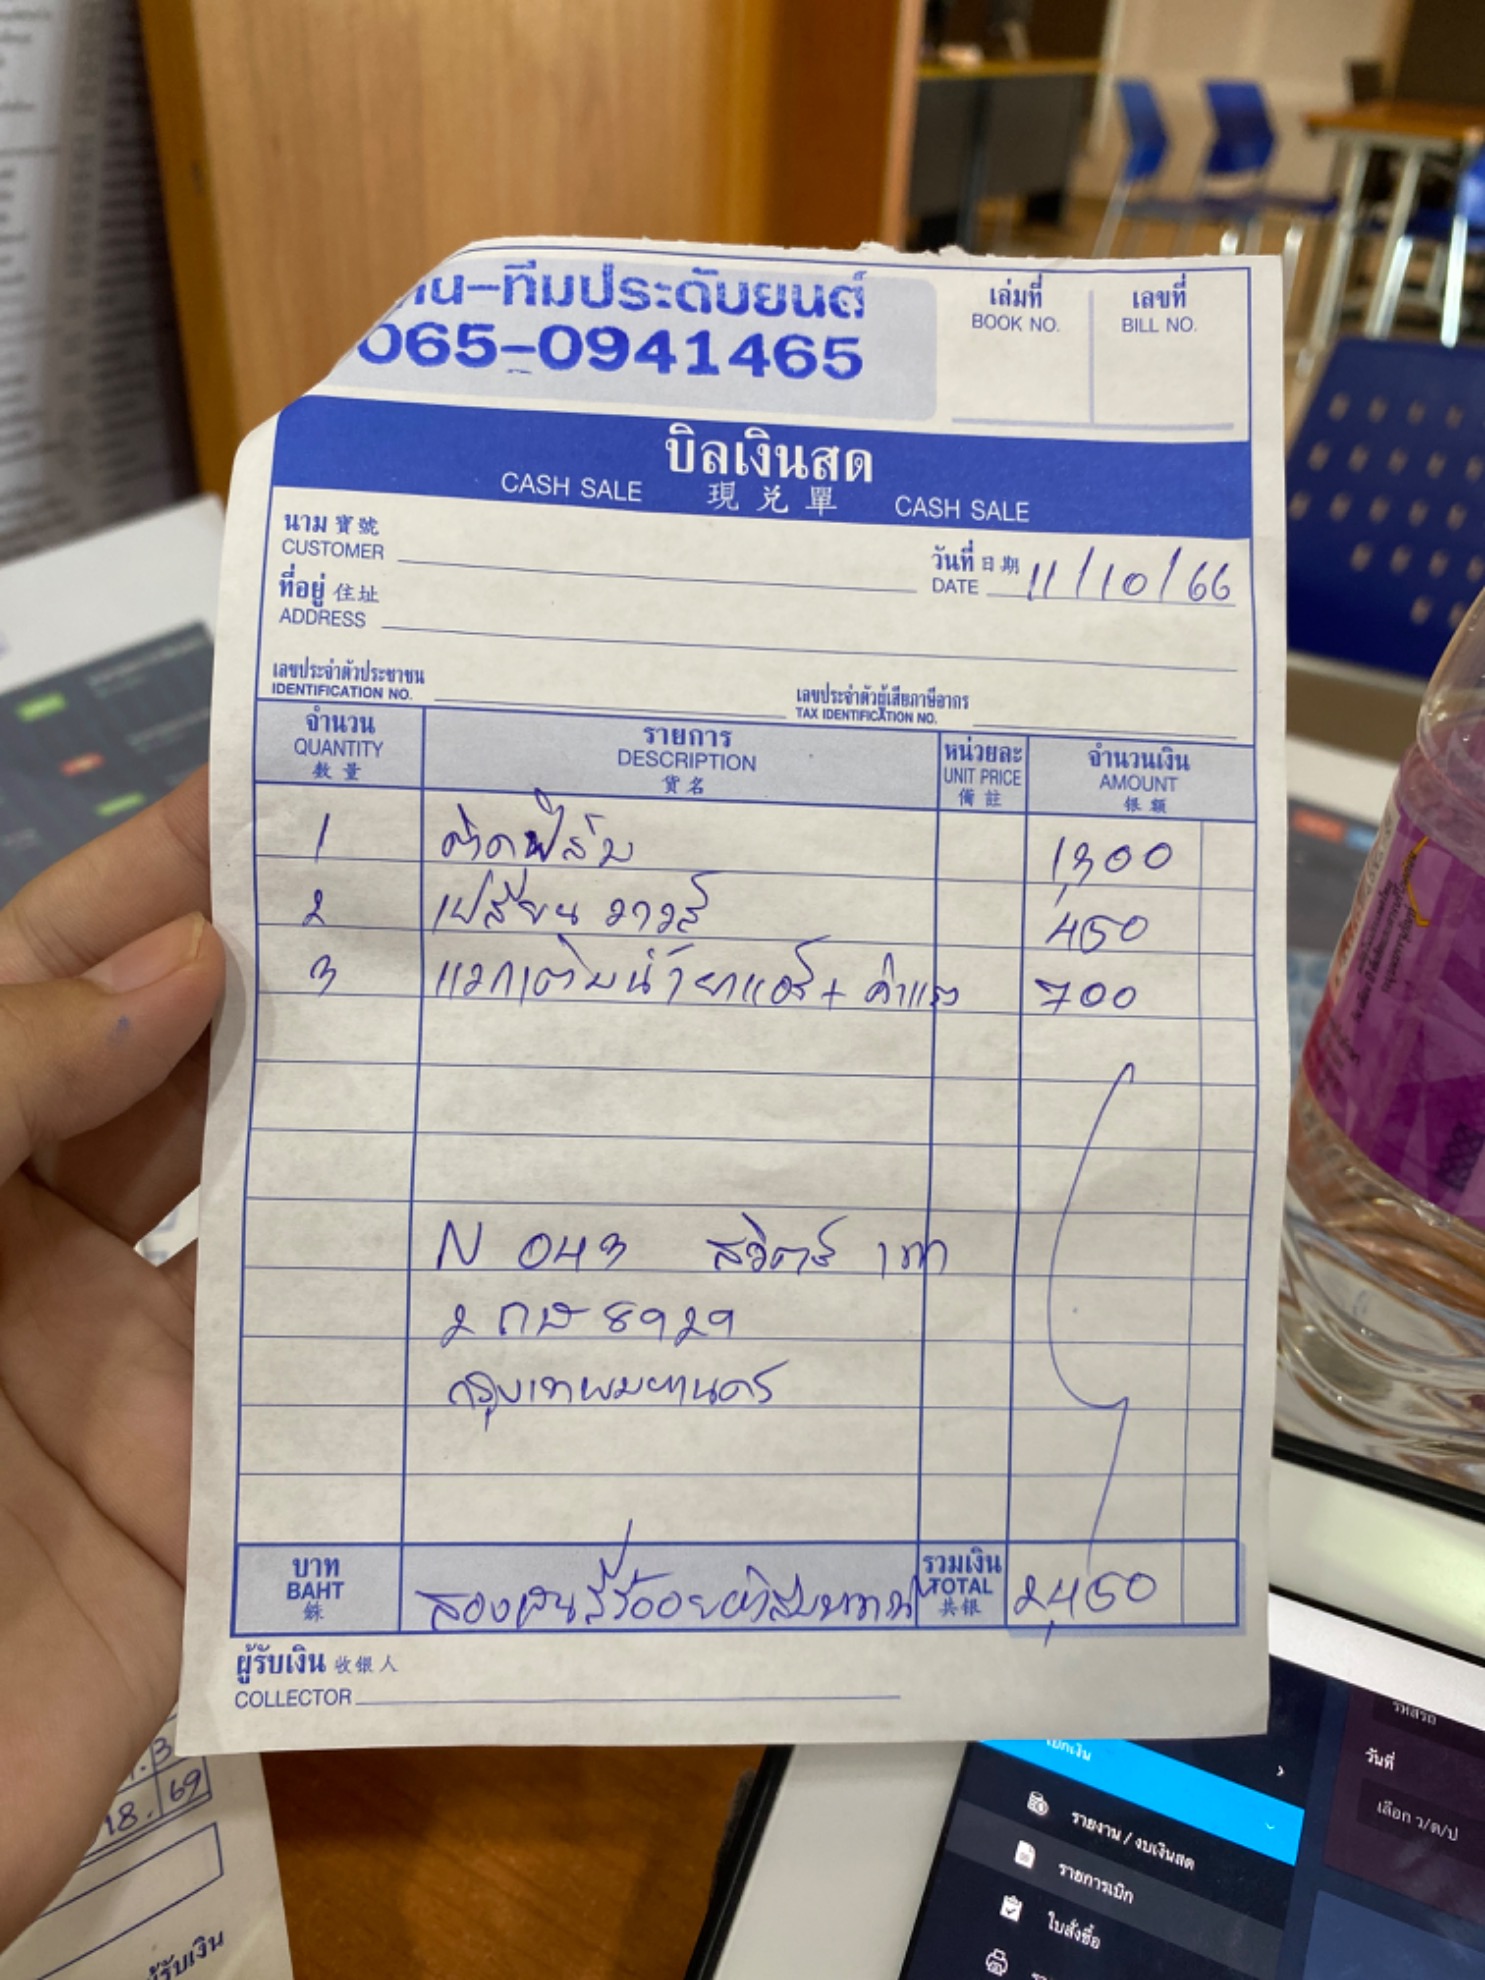 -ทีมประดับยนต์
065-0941465
เล่มที่ เลขที่
BOOK NO. BILL NO.
บิลเงินสด
CASH SALE 現兑單 CASH SALE
นาม 寶號
CUSTOMER
วันที่ 日期 11/10/66
DATE
ที่อยู่ 住址
ADDRESS
เลขประจำตัวประชาชน
IDENTIFICATION NO.
เลขประจำตัวผู้เสียภาษีอากร
TAX IDENTIFICATION NO.
จำนวน รายการ หน่วยละ จำนวนเงิน
QUANTITY DESCRIPTION UNIT PRICE AMOUNT
數量 貨名 備註 银額
1 ติดฟิล์ม 1,300
2 เปลี่ยน วาวล์ 450
3 แวกเติมน้ำยาแอร์ + ค่าแรง 700
N 043 สวิตซ์ เทา
2 กษ 8929
กรุงเทพมหานคร
บาท สองพันสี่ร้อยห้าสิบบาท รวมเงิน 2,450
BAHT TOTAL
銖 共银
ผู้รับเงิน 收银人
COLLECTOR
18.69
ผู้รับเงิน
เบิกเงิน
รายงาน / งบเงินสด
รายการเบิก
ใบสั่งซื้อ
รหัสรถ
วันที่
เลือก ว/ด/ป